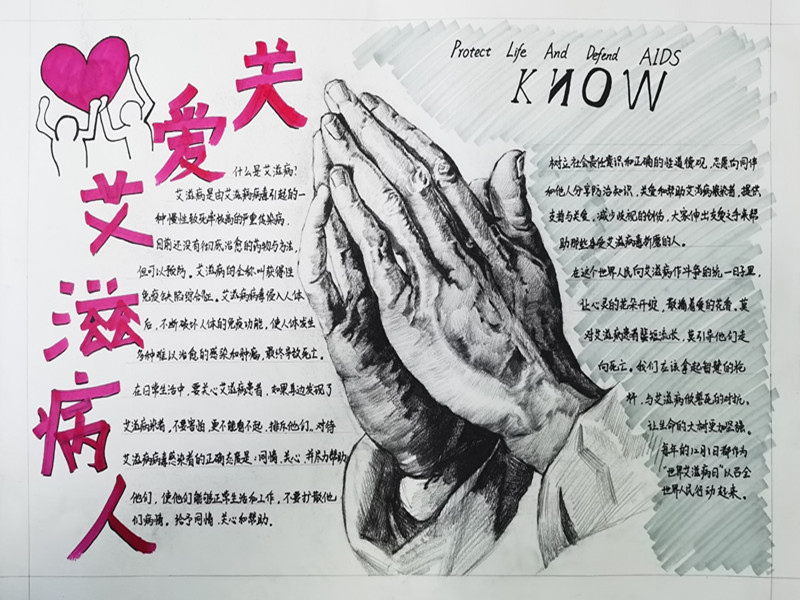 关爱艾滋病人
Protect Life And Defend AIDS
KNOW
什么是艾滋病？
艾滋病是由艾滋病病毒引起的一
种慢性致死率极高的严重传染病，
目前还没有彻底治愈的药物与方法，
但可以预防。艾滋病的全称叫获得性
免疫缺陷综合征。艾滋病病毒侵入人体
后，不断破坏人体的免疫功能，使人体发生
多种难以治愈的感染和肿瘤，最终导致死亡。
在日常生活中，要关心艾滋病患者，如果身边发现了
艾滋病染者，不要害怕，更不能看不起，排斥他们。对待
艾滋病病毒感染者的正确态度是：同情、关心，并尽力帮助
他们，使他们能够正常生活和工作，不要打骂他
们病情。给予同情、关心和帮助。
树立社会责任意识和正确的性道德观，志愿向同伴
和他人分享防治知识，关爱和帮助艾滋病感染者，提供
支持与关爱，减少歧视的创伤，大家伸出友爱之手来帮
助那些备受艾滋病毒折磨的人。
在这个世界人民向艾滋病作斗争的统一日子里，
让心灵的花朵开绽，散播着爱的花香。莫
对艾滋病患者蜚短流长，莫引导他们走
向死亡。我们应该拿起智慧的枪
杆，与艾滋病做殊死的对抗，
让生命的大树更加坚强。
每年的12月1日都作为
“世界艾滋病日”以召全
世界人民行动起来。